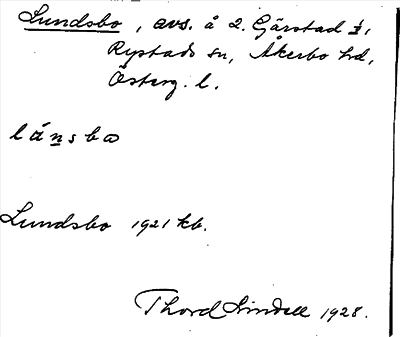 Lundsbo, avs. å 2. Gärstad 1/1
Rystads sn, Åkerbo hd,
Österg. l.
lánsbo
Lundsbo 1921 kb.
Thord Lindell 1928.